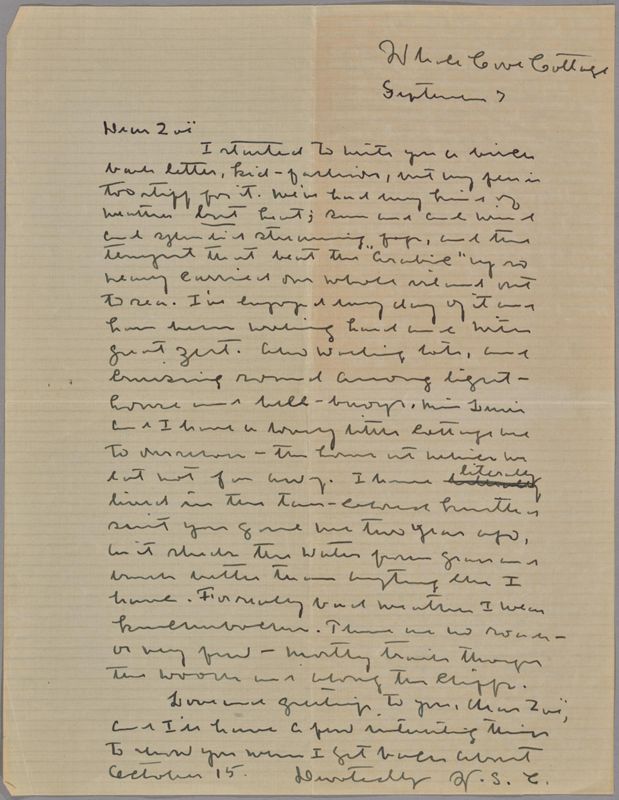 Whale Cove Cottage
September 7
Dear Zoë
I started to write you a birch
bark letter, kid-fashion, but my pen is
too stiff for it. We've had every kind of
weather but heat; sun and wind
and splendid streaming fogs, and the
tempest that beat the "Arabic" up so
nearly carried our whole island out
to sea. I've enjoyed every day of it and
have been working hard and with
great zest. Also walking lots, and
cruising round among light-
house and bell-buoys. Miss Lewis
and I have a lovely little cottage all
to ourselves - the house at which we
eat not far away. I have literally
lived in the tan-colored knitted
suit you gave me two years ago,
as it sheds the water from grass and
brush better than anything else I
have. For really bad weather I wear
knickerbockers. There are no roads -
or very few - mostly trails through
the woods and along the cliffs.
Love and greetings to you, dear Zoë,
and I'll have a few interesting things
to show you when I get back about
October 15. Devotedly W. S. C.